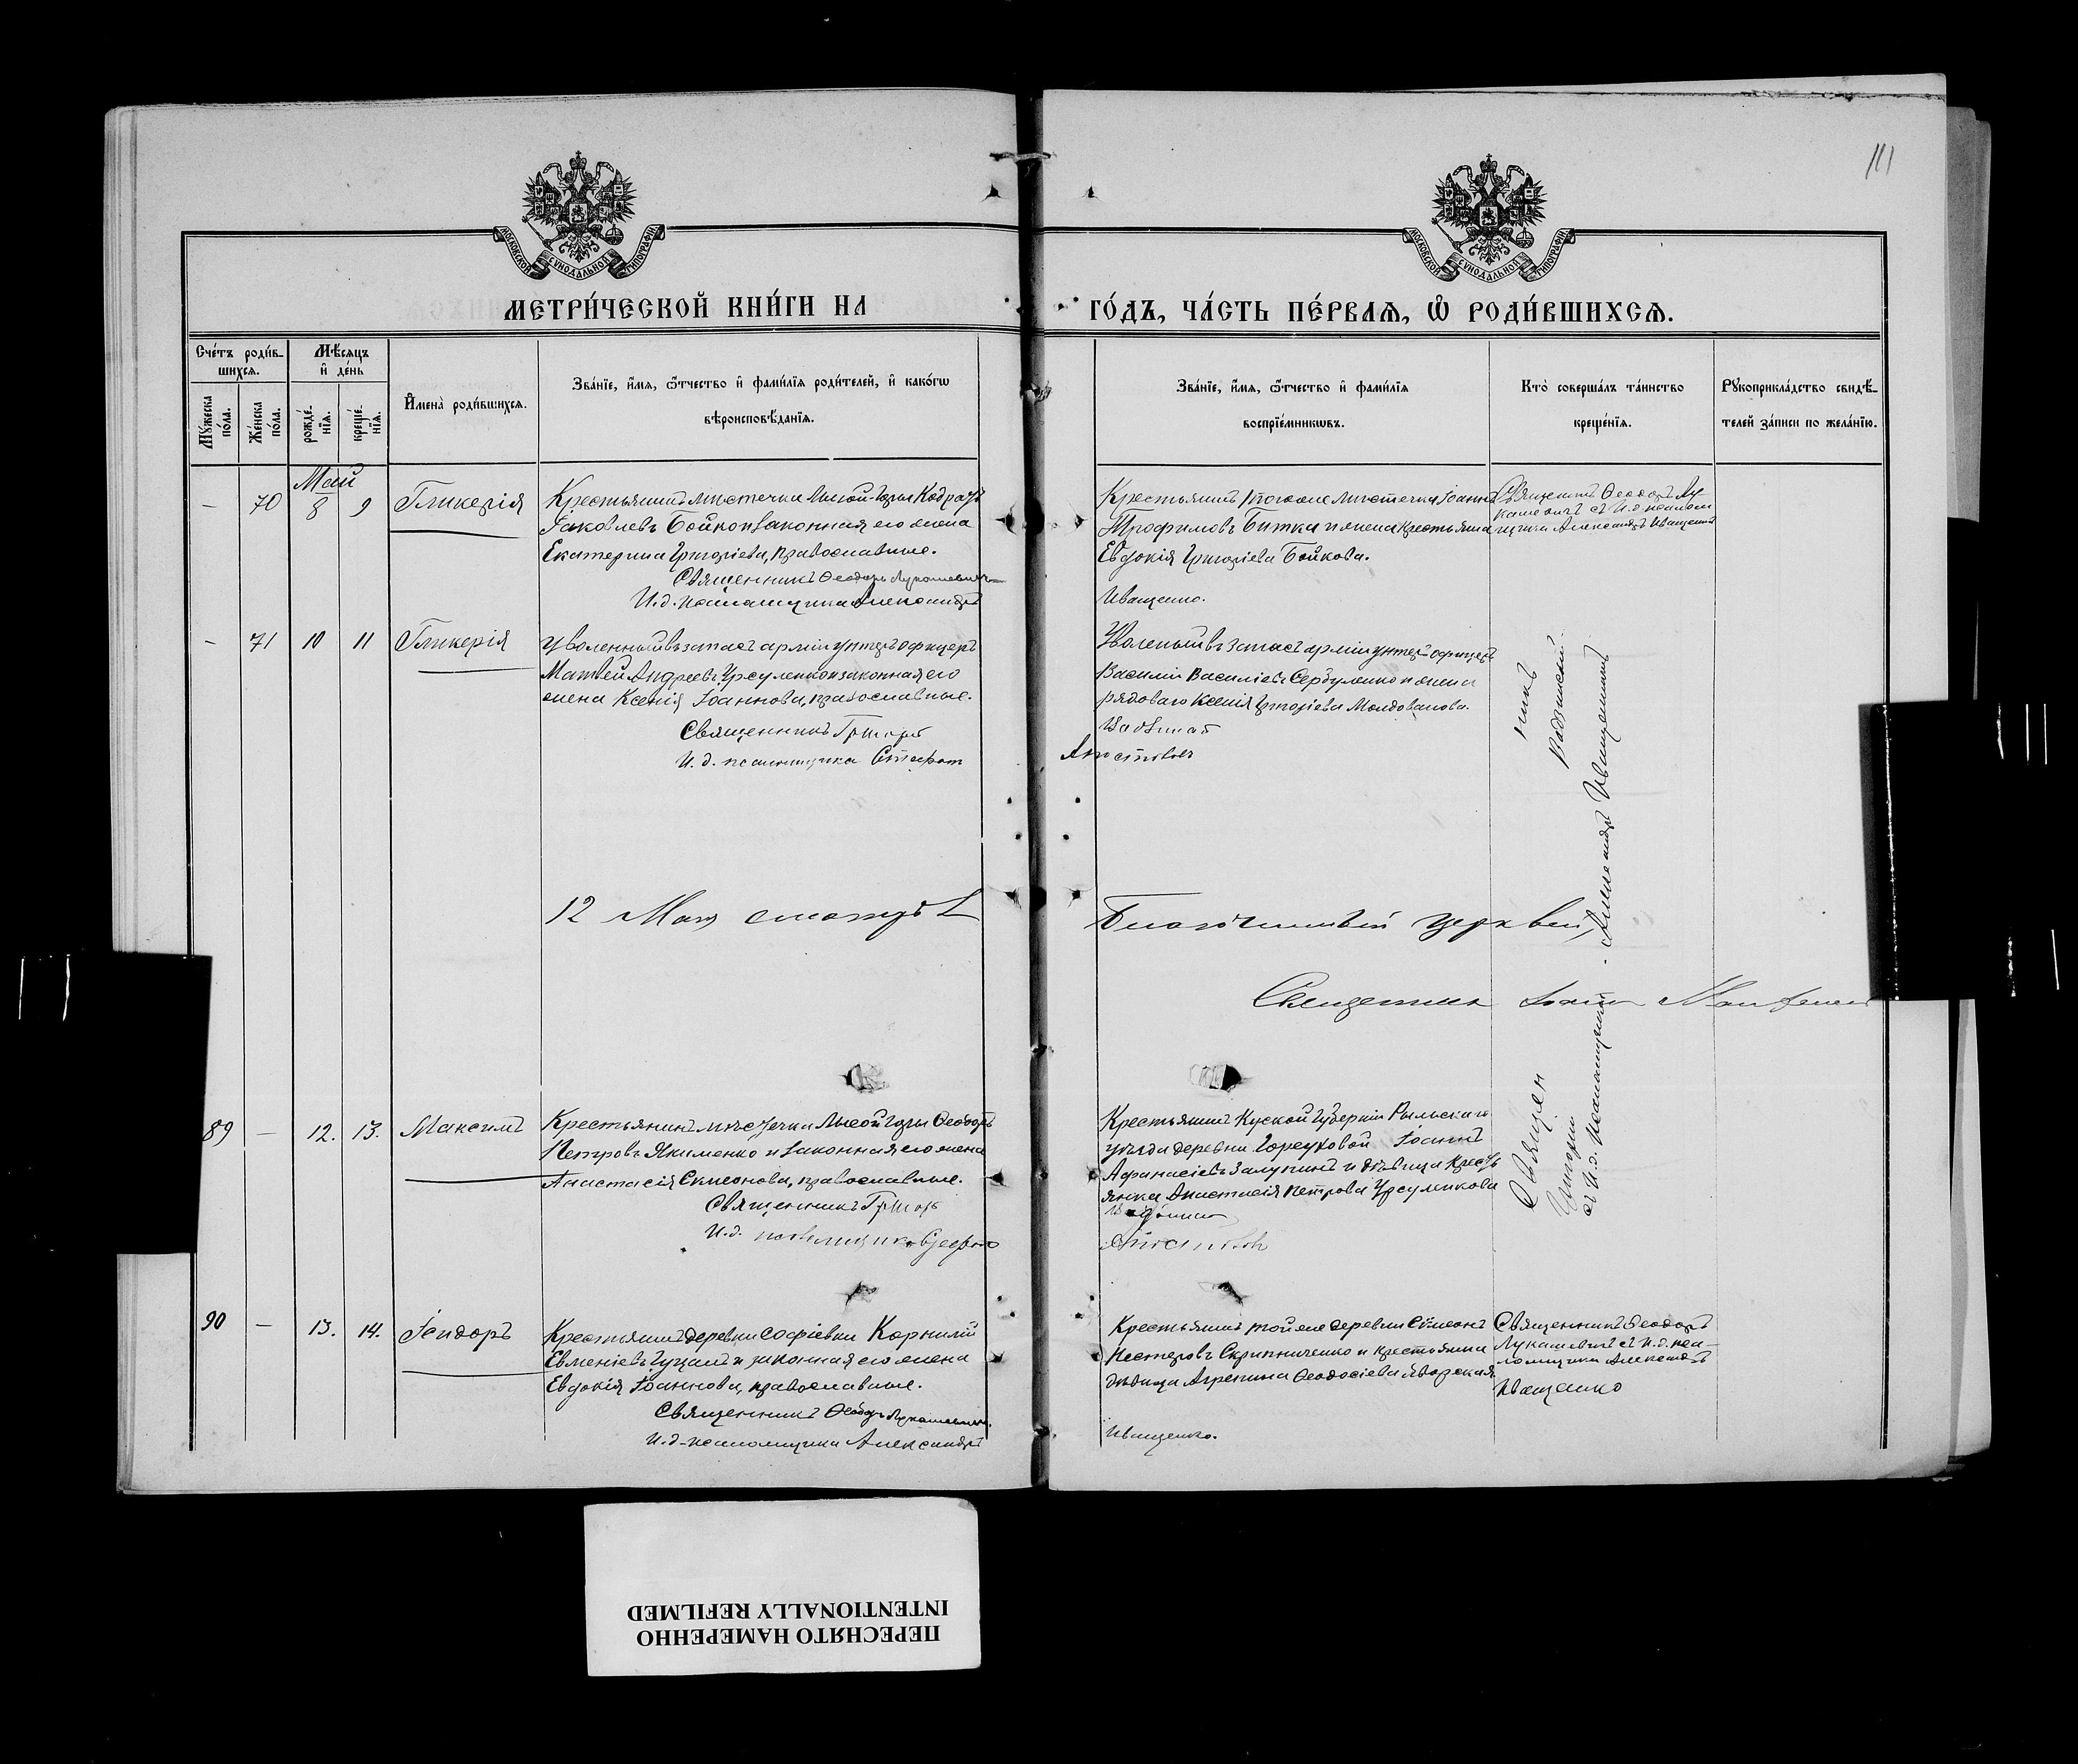 111
МОСКОВСКОЙ СУНОДАЛЬНОЙ ТИПОГРАФІИ
МОСКОВСКОЙ СУНОДАЛЬНОЙ ТИПОГРАФІИ
МЕТРИ́ЧЕСКОЙ КНИ́ГИ НА ГО́ДЪ, ЧА́СТЬ ПЕ́РВАѦ, Ѡ҆ РОДИ́ВШИХСѦ.
Сче́тъ роди́в-
шихсѧ.
Мꙋ́жеска
по́ла.
Же́нска
по́ла.
Мѣ́сѧцъ
и҆ де́нь
рожде́-
нїѧ.
креще́-
нїѧ.
И҆мена̀ роди́вшихсѧ.
Зва́нїе, и҆́мѧ, ѻ҆́тчество и҆ фами́лїѧ роди́телей, и҆ како́гѡ
вѣроисповѣ́данїѧ.
Зва́нїе, и҆́мѧ, ѻ҆́тчество и҆ фами́лїѧ
воспрїе́мникѡвъ.
Кто̀ соверша́лъ та́инство
креще́нїѧ.
Рꙋкоприкла́дство свидѣ́-
телей за́писи по жела́нїю.
Май
— 70 8 9 Гликерія
Крестьянинъ мѣстечка Лысой-Горы Кодратъ
Іаковлевъ Бойко и законная его жена
Екатерина Григоріева, православные.
Священникъ Ѳеодоръ Лукашевичъ
И.д. псаломщика Александръ
Крестьянинъ того же мѣстечка Іоаннъ
Трофимовъ Битка и жена крестьянина
Евдокія Григоріева Бойкова.
Иващенко.
Священникъ Ѳеодоръ Лу-
кашевичъ съ И.д. псалом-
щика Александръ Иващенко
— 71 10 11 Гликерія
Уволенный въ запасъ арміи унтеръ офицеръ
Матвей Андреевъ Урсуленко и законная его
жена Ксенія Іоаннова, православные.
Священникъ Григорій
И.д. псаломщика Стефан
Уволеный въ запасъ арміи унтеръ-офицеръ
Василій Василіевъ Сербуленко и жена
рядоваго Ксенія Григоріева Молдованова.
Апостоловъ
12 Мая
Благочинный церквей,
Священник Іоанн
Священ
никъ
Григорій
съ И.д. псаломщика Александръ Иващенко
89 — 12. 13. Максимъ
Крестьянинъ мѣстечка Лысой Горы Ѳеодоръ
Петровъ Якименко и законная его жена
Анастасія Симеонова, православные.
Священникъ Григорій
И.д. псаломщика Стефан
Крестьянинъ Куской Губерніи Рыльскаго
уѣзда деревни Іоаннъ
Афанасіевъ Залунинъ и дѣвица Кресть
янка Анастасія Петрова Урсуленкова
Апостоловъ
90 — 13. 14. Ісидоръ
Крестьянинъ деревни Софіевки Корнилій
Евменіевъ Гуцалъ и законная его жена
Евдокія Іоаннова, православные.
Священникъ Ѳеодоръ Лукашевичъ.
И.д. псаломщика Александръ
Крестьянинъ той же деревни Сѵмеонъ
Нестеровъ Скрипниченко и крестьянка
дѣвица Агрепина Ѳеодосіева
Иващенко.
Священникъ Ѳеодоръ
Лукашевичъ съ И.д. пса-
ломщика Александръ
Иващенко
ПЕРЕСНЯТО НАМЕРЕННО
INTENTIONALLY REFILMED